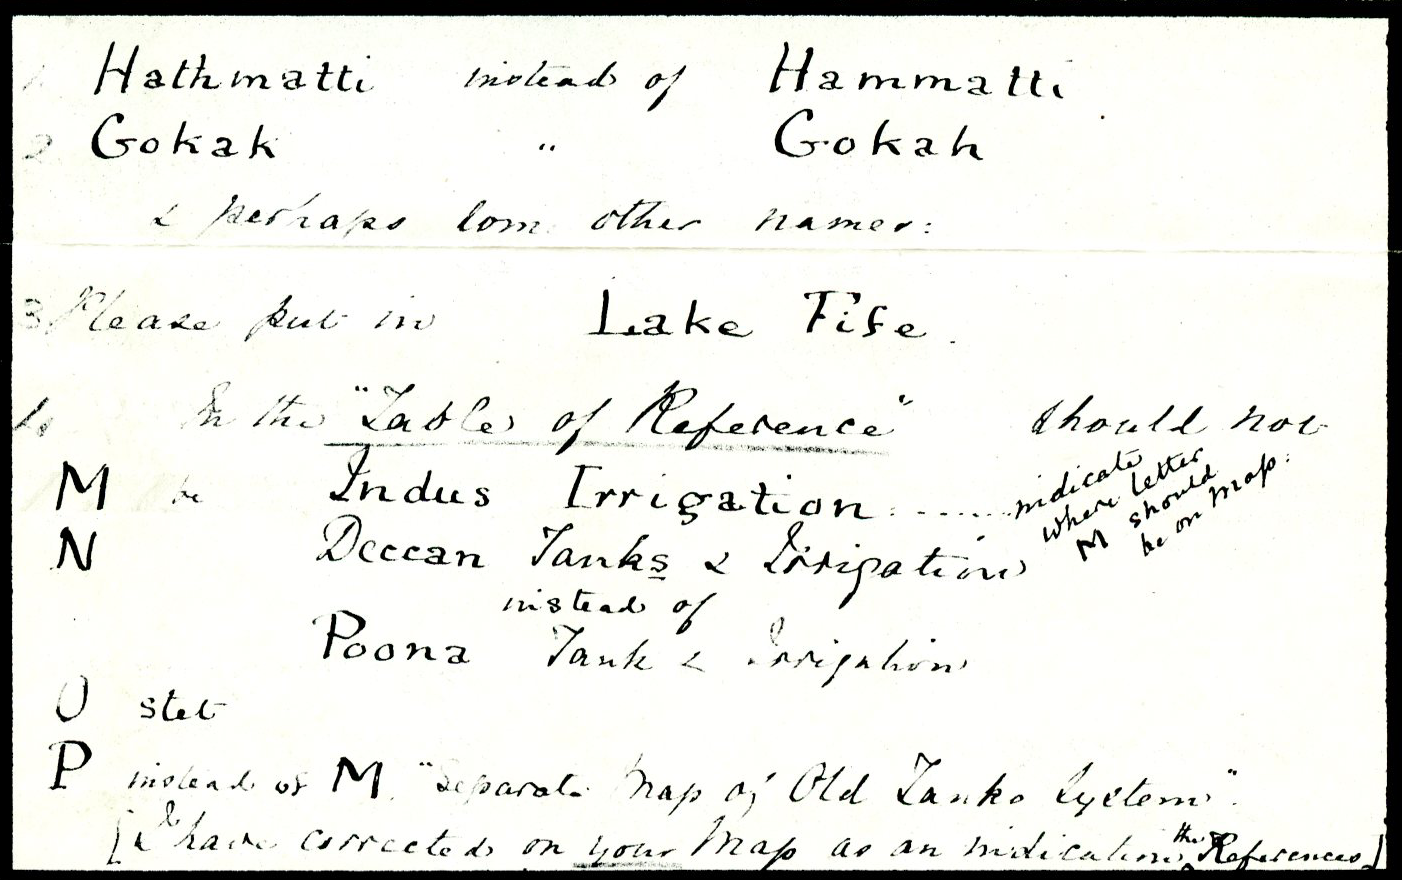 1. Hathmatti instead of Hammatti
2 Gokak " Gokah
& perhaps som other names:
3 Please put in Lake Fife.
4 In the "Table of Reference" should not
M be Indus Irrigation ........ indicate
where letter
M should
be on Map:
N Deccan Tanks & Irrigation
instead of
Poona Tank & Irrigation
O stet
P instead of M. "Separate Map of Old Tanks System".
[I have corrected on your Map as an indication the References]